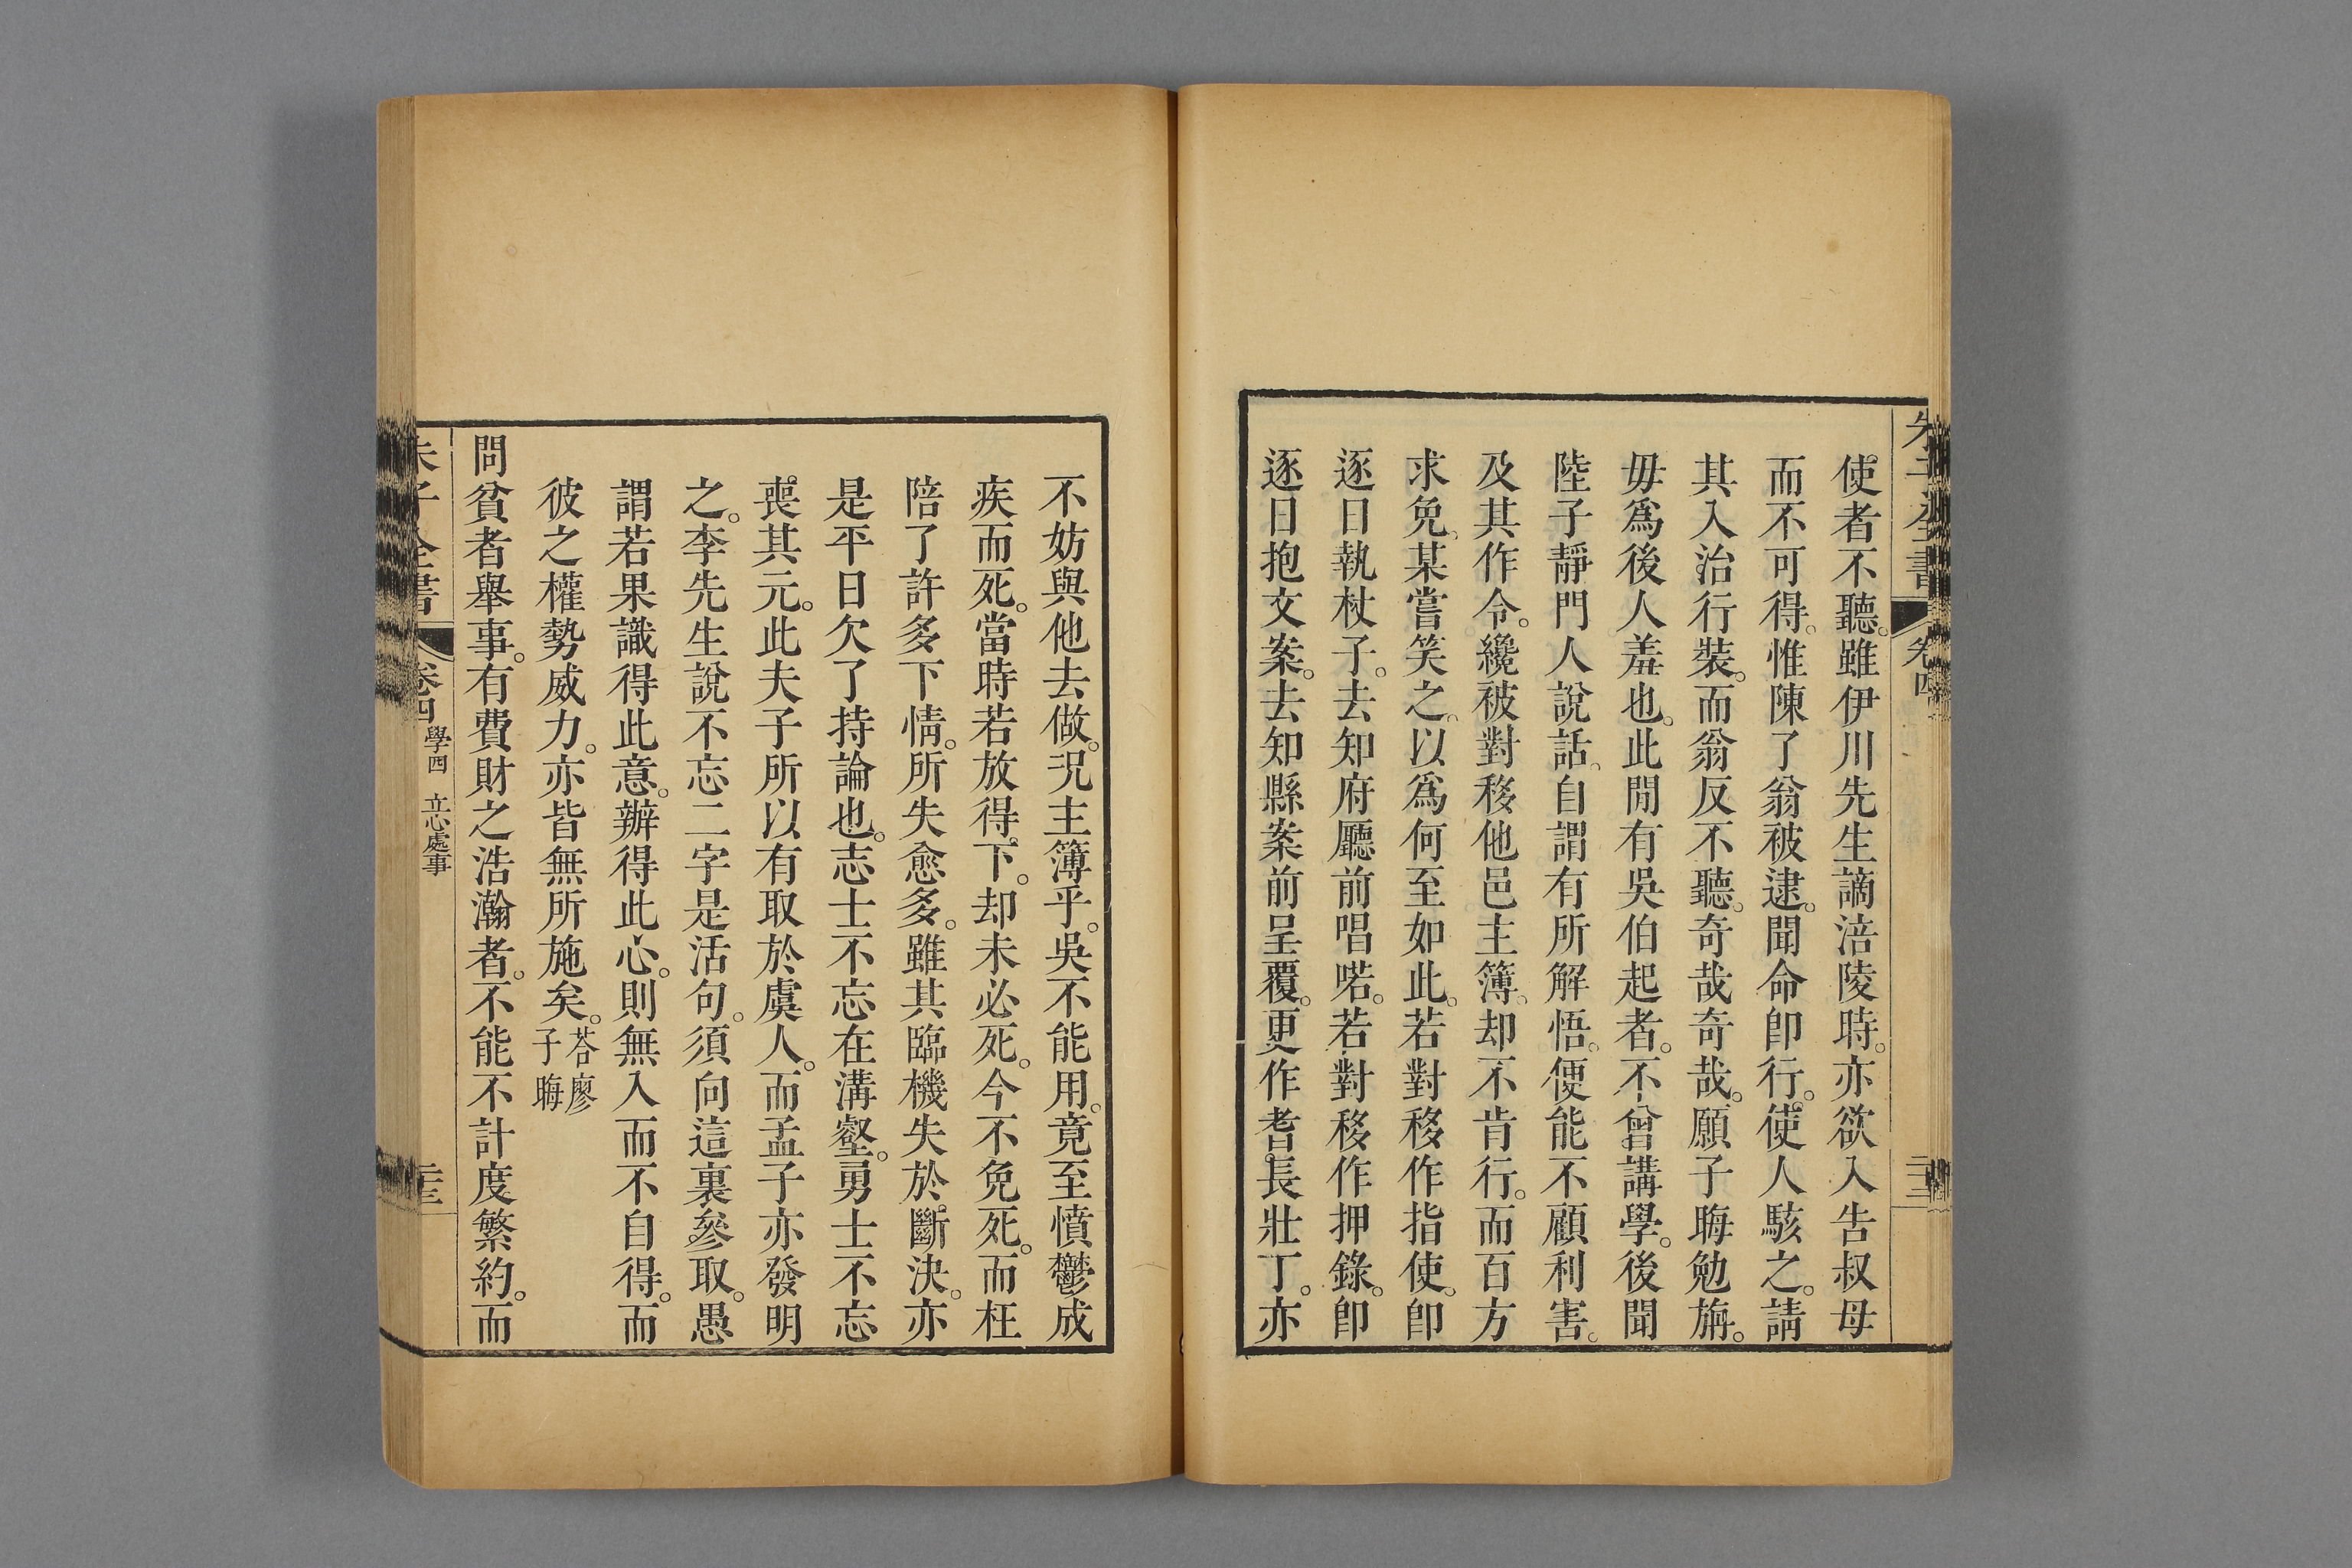 使者不聽。雖伊川先生謫涪陵時。亦欲入告叔母
而不可得。惟陳了翁被逮。聞命卽行。使人駭之。請
其入治行裝。而翁反不聽。奇哉奇哉。願子晦勉旃。
毋爲後人羞也。此閒有吳伯起者。不曾講學。後聞
陸子靜門人說話。自謂有所解悟。便能不顧利害。
及其作令。纔被對移他邑主簿。却不肯行。而百方
求免。某嘗笑之。以爲何至如此。若對移作指使。卽
逐日執杖子。去知府廳前唱喏。若對移作押錄。卽
逐日抱文案。去知縣案前呈覆。更作耆長壯丁。亦
不妨與他去做。况主簿乎。吳不能用。竟至憤鬱成
疾而死。當時若放得下。却未必死。今不免死。而枉
陪了許多下情。所失愈多。雖其臨機失於斷決。亦
是平日欠了持論也。志士不忘在溝壑。勇士不忘
喪其元。此夫子所以有取於虞人。而孟子亦發明
之。李先生說不忘二字是活句。須向這裏參取。愚
謂若果識得此意。辦得此心。則無入而不自得。而
彼之權勢威力。亦皆無所施矣。荅廖子晦
問貧者舉事。有費財之浩瀚者。不能不計度繁約。而
朱子全書 卷四 學四 立心處事